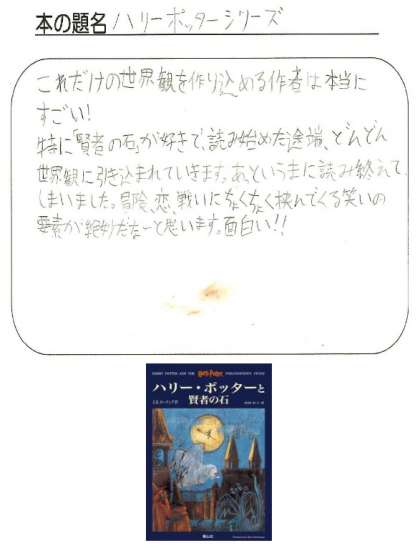 本の題名 ハリーポッターシリーズ
これだけの世界観を作り込める作者は本当に
すごい!
特に「賢者の石」が好きで、読み始めた途端、どんどん
世界観に引き込まれていきます。あという間に読み終えて
しまいました。冒険、恋、戦いにちょくちょく挟んでくる笑いの
要素が絶妙だなーと思います。面白い!!
HARRY POTTER AND THE Harry Potter PHILOSOPHER'S STONE
ハリー・ポッターと
賢者の石